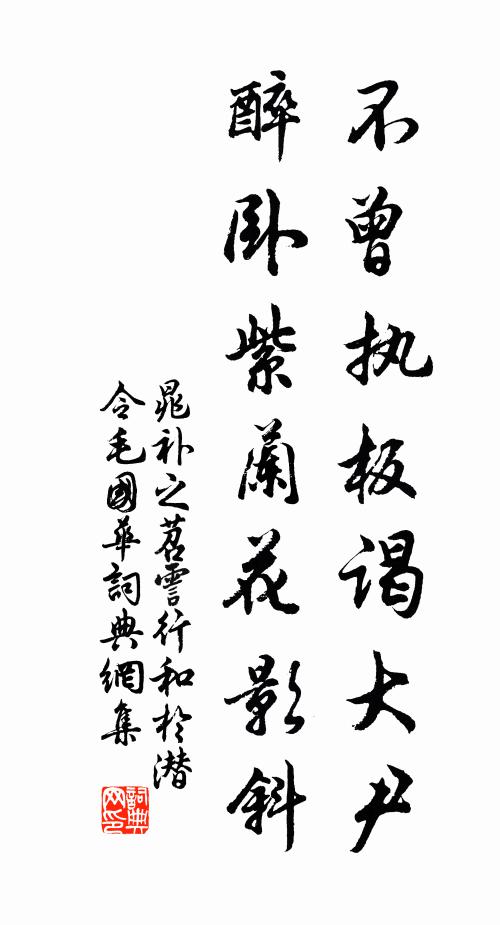 不曾执板谒大尹
醉卧紫蘭花影斜
晁补之苕霅行和於潜
令毛國华詞典網集
詞典网印